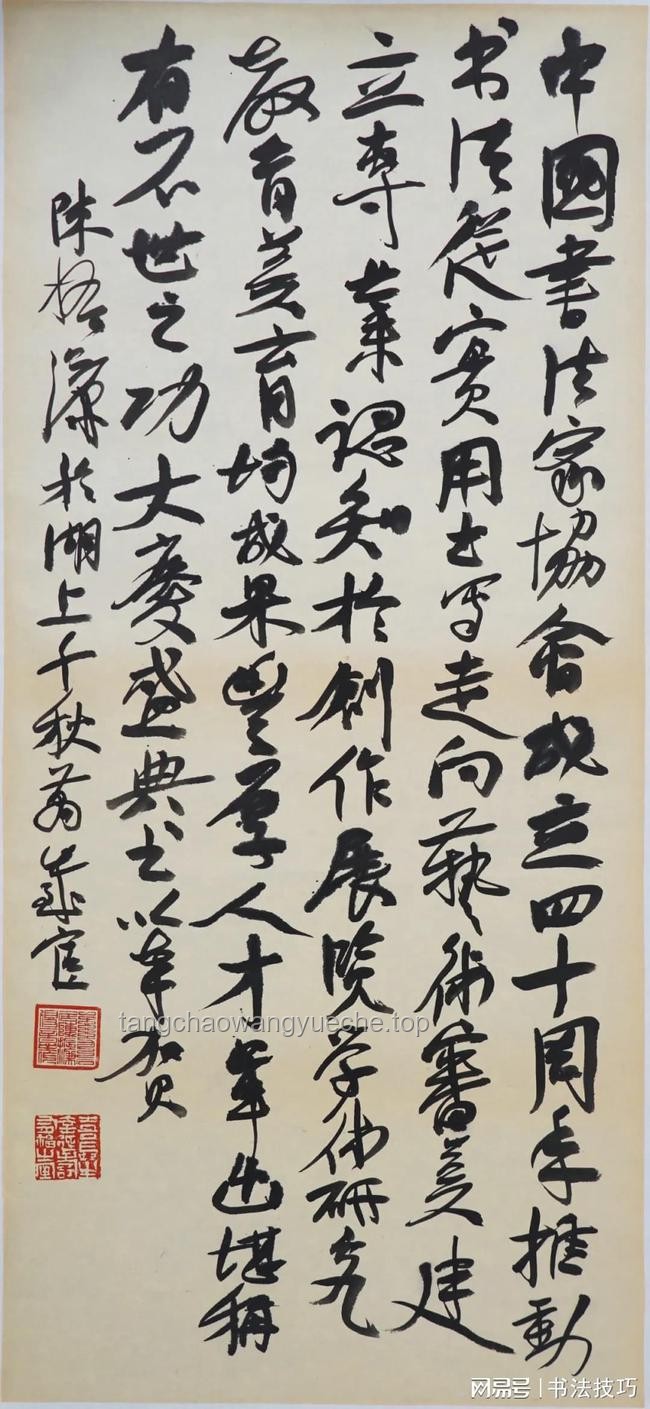 中國書法家協會成立四十周年推動
书法從實用书写走向藝術審美建
立專業認知於創作展覽学術研究
教育美育均成果豐厚人才辈出堪稱
有不世之功大慶盛典书以奉贺
陈振濂於湖上千秋萬歲宧
tangchaowangyueche.top
网易号 | 书法技巧